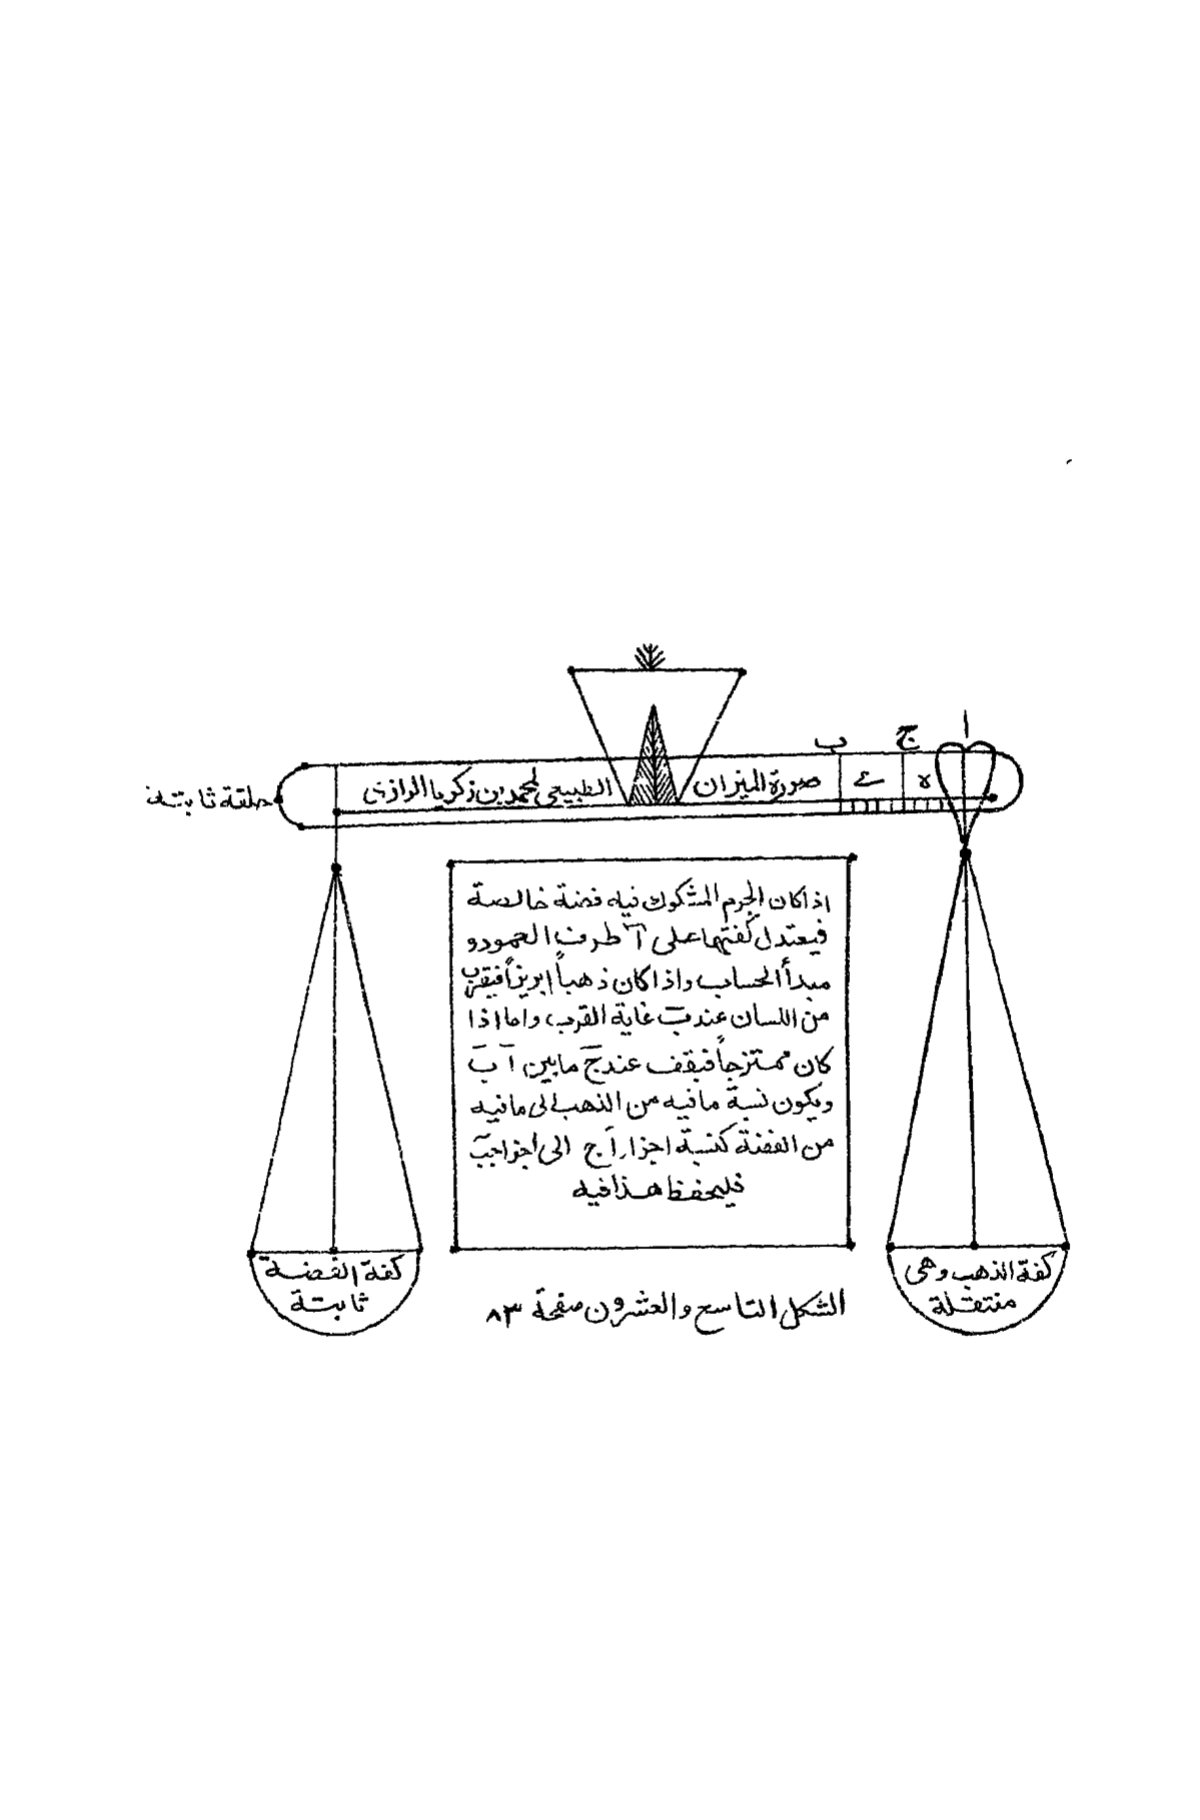 ا
ج
ب
صورة الميزان الطبيعى لمحمد بن زكريا الرازى
ع
ه
حلقة ثابتة
اذا كان الجرم المشكوك فيه فضة خالصة
فيعتدل كفتها على آ طرف العمود و
مبدأ الحساب واذا كان ذهباً ابريزاً فيقرب
من اللسان عند ب غاية القرب واما اذا
كان ممتزجاً فيقف عند ج ما بين آ ب
ويكون نسبة ما فيه من الذهب الى ما فيه
من الفضة كنسبة اجزاء آج الى اجزاء جب
فليحفظ هذا فيه
كفة الذهب وهى
منتقلة
كفة الفضة
ثابتة
الشكل التاسع والعشرون صفحة ٨٣